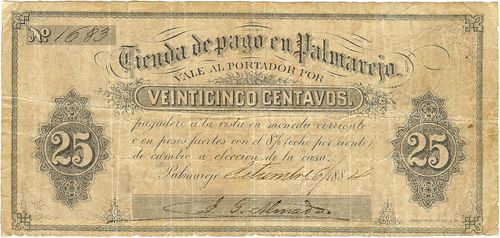 No 1683
Tienda de pago en Palmarejo.
VALE AL PORTADOR POR
VEINTICINCO CENTAVOS.
pagadero á la vista en moneda corriente
o en pesos fuertes con el 8% (ocho por ciento)
25 25
de cambio a eleccion de la casa.
Palmarejo 6/1884